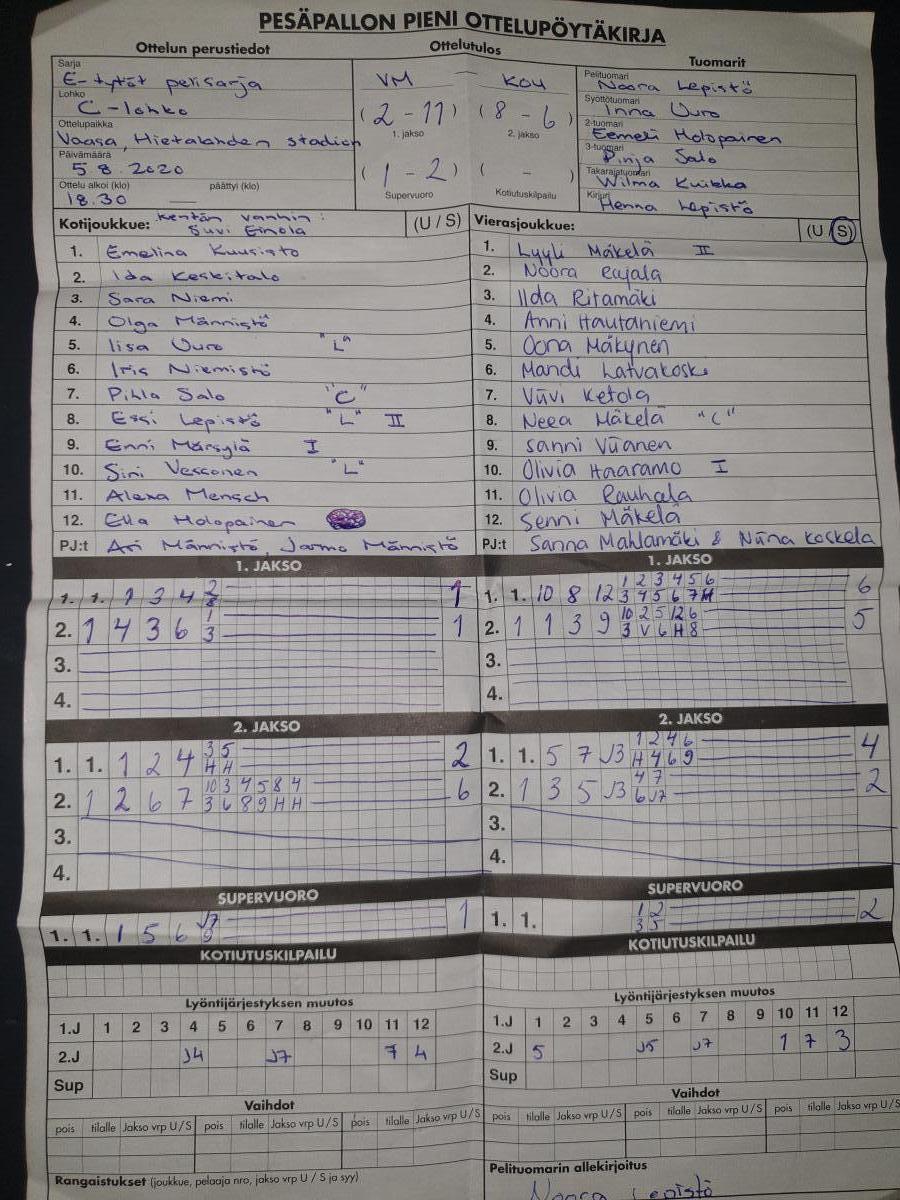 PESÄPALLON PIENI OTTELUPÖYTÄKIRJA
Ottelun perustiedot
Ottelutulos
Tuomarit
Sarja
E-tytöt perisarja
Lohko
C-lohko
Ottelupaikka
Vaasa, Hietalahden stadion
Päivämäärä
5.8.2020
Ottelu alkoi (klo) päättyi (klo)
18.30 —
VM — KOU
(2-11) (8-6)
1. jakso 2. jakso
(1-2) ( - )
Supervuoro Kotiutuskilpailu
Pelituomari
Noora Lepistö
Syöttötuomari
Inna Uuro
2-tuomari
Eemeli Holopainen
3-tuomari
Pinja Salo
Takarajatuomari
Wilma Kuikka
Kirjuri
Henna Lepistö
Kotijoukkue: Kentän vanhin: Suvi Einola (U / S)
1. Emelina Kuusisto
2. Ida Keskitalo
3. Sara Niemi
4. Olga Männistö
5. Iisa Uuro "L"
6. Iris Niemistö
7. Pihla Salo "C"
8. Essi Lepistö "L" II
9. Enni Märsylä I
10. Sini Vesconen "L"
11. Alexa Mensch
12. Ella Holopainen
PJ:t Ari Männistö, Jarmo Männistö
Vierasjoukkue: (U / S)
1. Lyyli Mäkelä II
2. Noora Rajala
3. Ilda Ritamäki
4. Anni Hautaniemi
5. Oona Mäkynen
6. Mandi Latvakoski
7. Viivi Ketola
8. Neea Mäkelä "C"
9. Sanni Viianen
10. Olivia Haaramo I
11. Olivia Rauhala
12. Senni Mäkelä
PJ:t Sanna Mahlamäki & Niina Koskela
1. JAKSO
1. 1. 1 3 4 2/8 1
2. 1 4 3 6 1/3 1
3.
4.
1. JAKSO
1 2 3 4 5 6
1. 1. 10 8 12 3 4 5 6 7 H 6
10 2 5 12 6
2. 1 1 3 9 3 V 6 H 8 5
3.
4.
2. JAKSO
3 5
1. 1. 1 2 4 H H 2
10 3 4 5 8 4
2. 1 2 6 7 3 6 8 9 H H 6
3.
4.
2. JAKSO
1 2 4 6
1. 1. 5 7 J3 H 4 6 9 4
4 7
2. 1 3 5 J3 6 J7 2
3.
4.
SUPERVUORO
1. 1. 1 5 6 J7/9 1
SUPERVUORO
1 2
1. 1. 3 5 2
KOTIUTUSKILPAILU
KOTIUTUSKILPAILU
Lyöntijärjestyksen muutos
1.J 1 2 3 4 5 6 7 8 9 10 11 12
2.J J4 J7 7 4
Sup
Lyöntijärjestyksen muutos
1.J 1 2 3 4 5 6 7 8 9 10 11 12
2.J 5 J5 J7 1 7 3
Sup
Vaihdot
pois tilalle Jakso vrp U / S pois tilalle Jakso vrp U / S pois tilalle Jakso vrp U / S
Vaihdot
pois tilalle Jakso vrp U / S pois tilalle Jakso vrp U / S pois tilalle Jakso vrp U / S
Rangaistukset (joukkue, pelaaja nro, jakso vrp U / S ja syy)
Pelituomarin allekirjoitus
Noora Lepistö